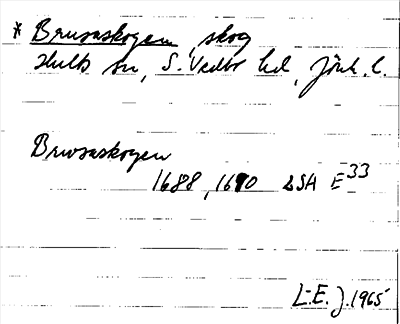 * Brusaskogen, skog
Hults sn, S. Vedbo hd, Jönk. l.
Brwsaskogen
1688, 1690 LSA E 33
L-E. J. 1965